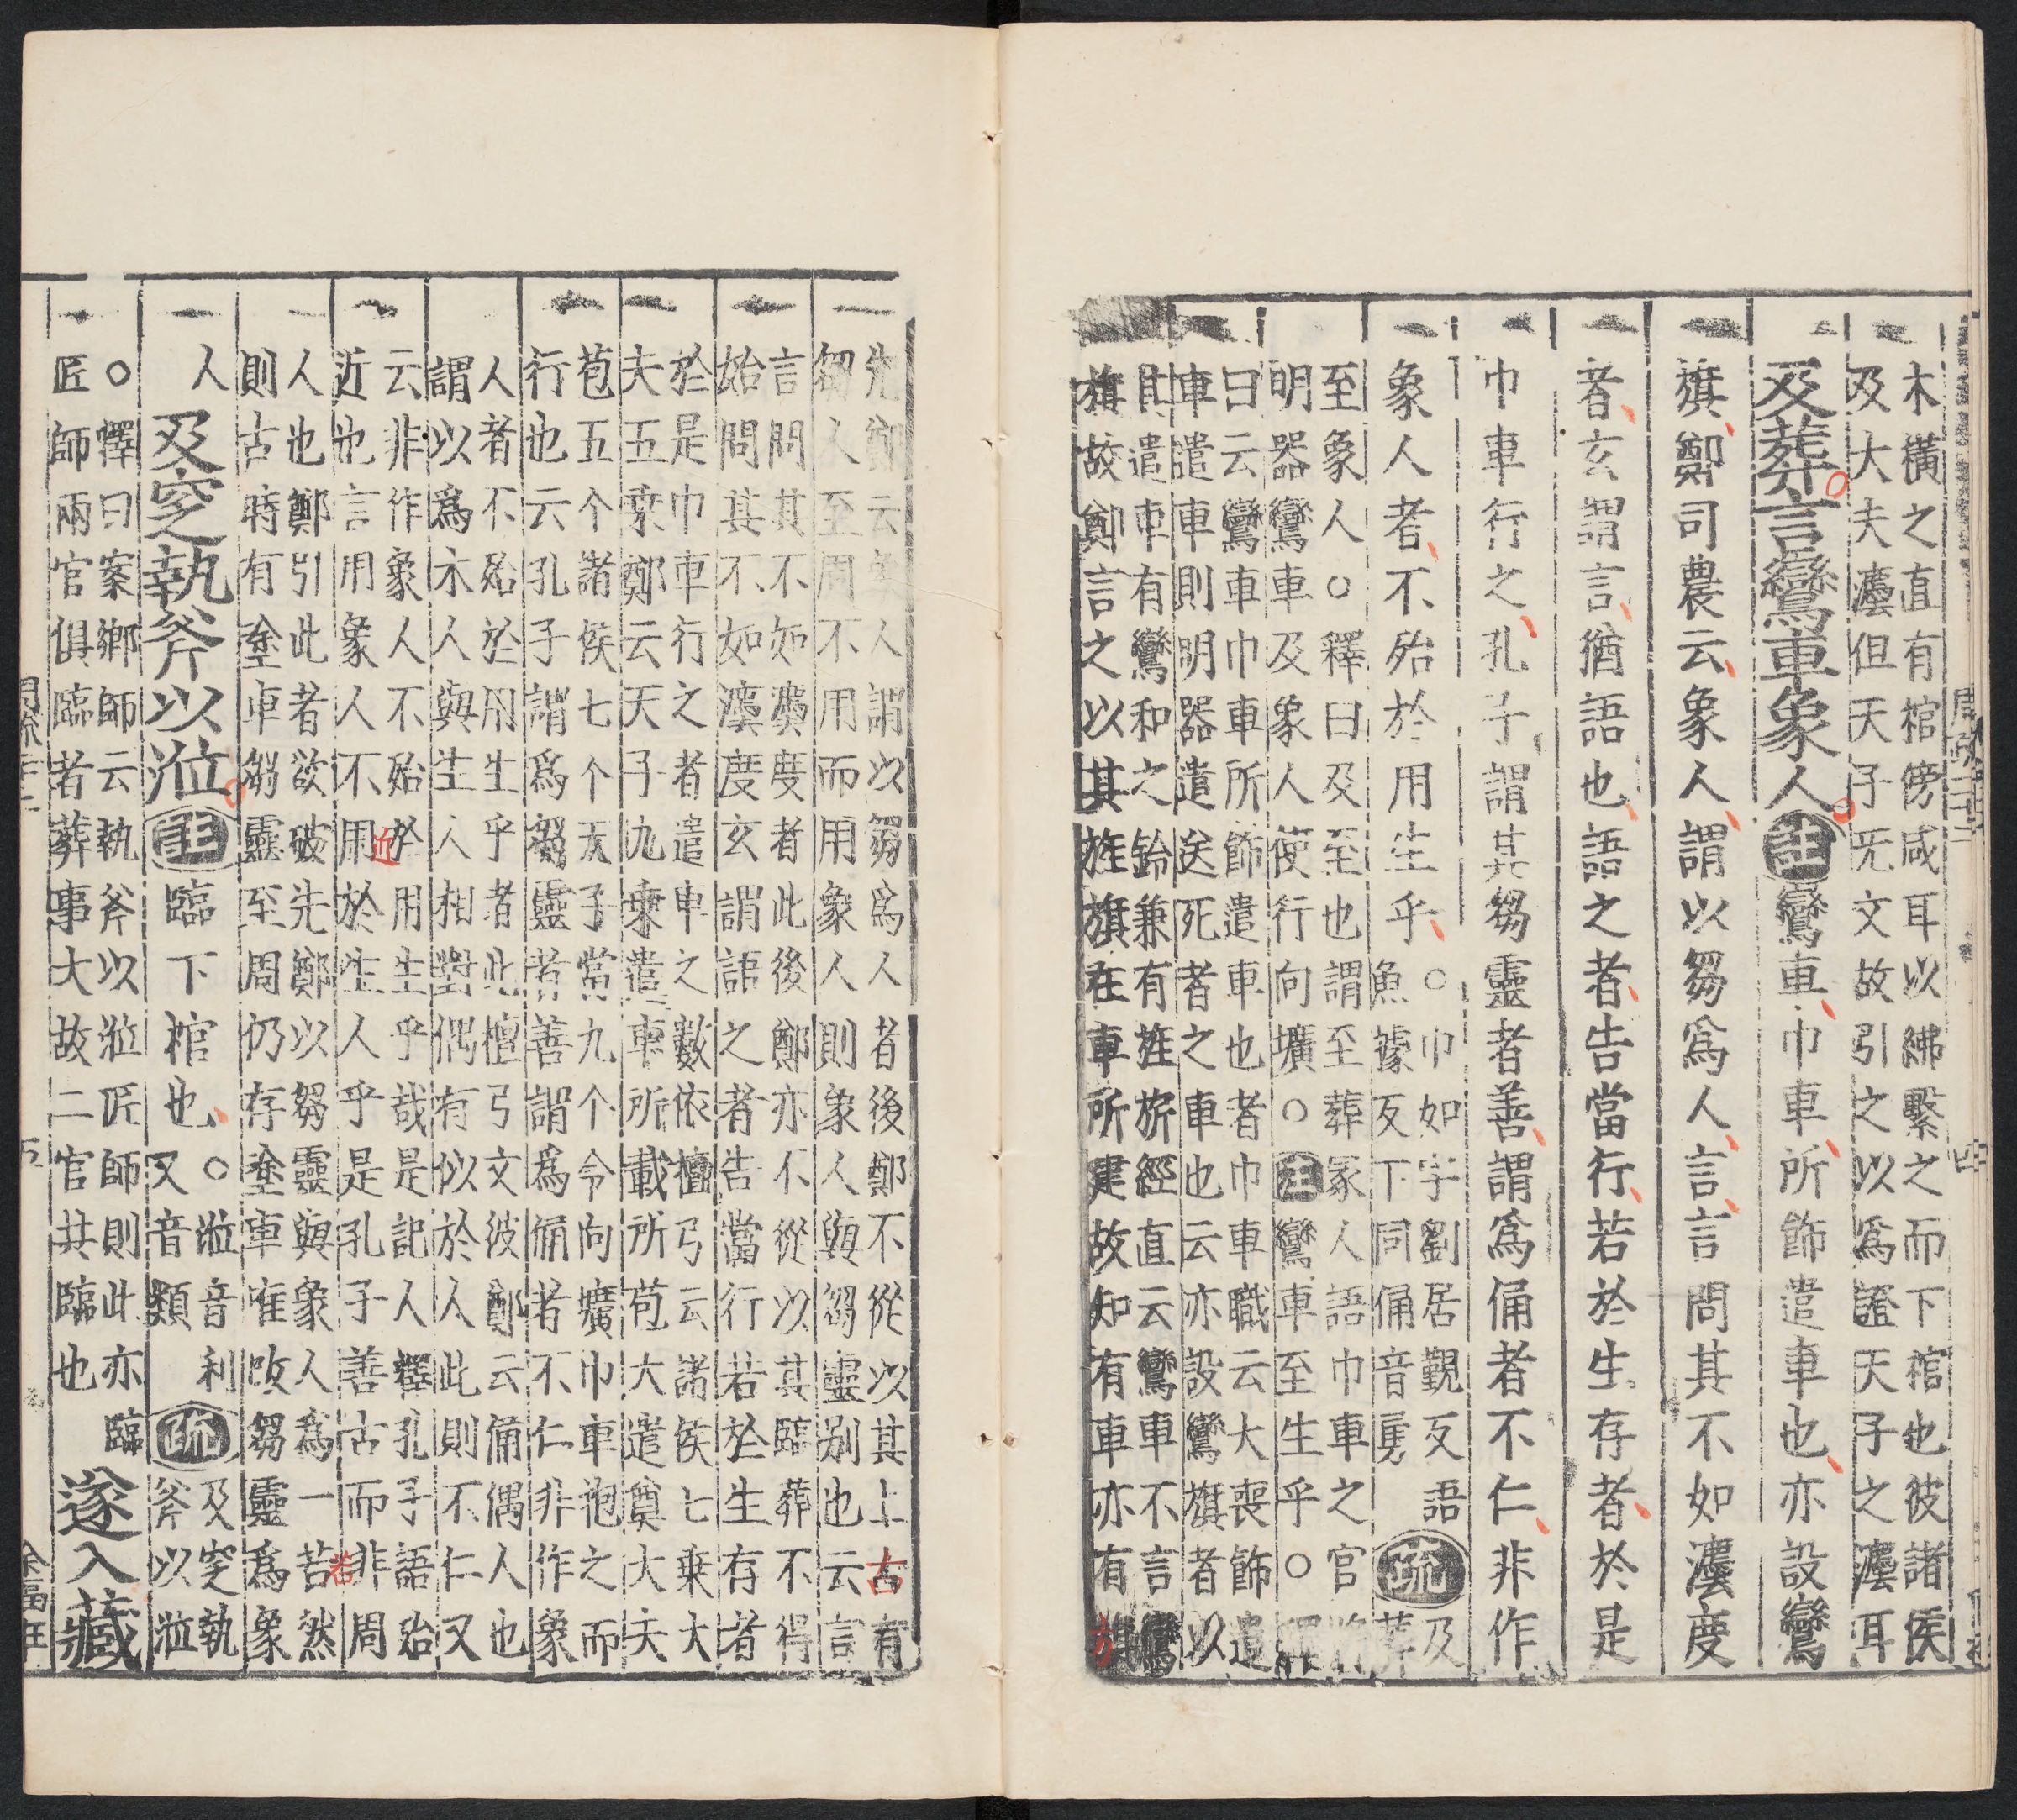 木橫之直有棺傍咸耳以紼繫之而下棺也彼諸侯
及大夫灋但天子旡文故引之以爲證天子之灋耳
及葬言鸞車象人註鸞車巾車所飾遣車也亦設鸞
旗鄭司農云象人謂以芻爲人言言問其不如灋度
者玄謂言猶語也語之者告當行若於生存者於是
巾車行之孔子謂其芻靈者善謂爲俑者不仁非作
象人者不殆於用生乎
○巾如字劉居覲反語
魚據反下同俑音勇
疏
及
葬
至象人○釋曰及至也謂至葬冢人語巾車之官將
明器鸞車及象人使行向壙○註鸞車至生乎○釋
曰云鸞車巾車所飾遣車也者巾車職云大喪飾遣
車遣車則明器遣送死者之車也云亦設鸞旗者以
其遣車有鸞和之鈴兼有旌旂經直云鸞車不言鸞
旗故鄭言之以其旌旗在車所建故知有車亦有旗
先鄭云象人謂以芻爲人者後鄭不從以其上古有
芻人至周不用而用象人則象人與芻靈别也云言
言問其不如灋度者此後鄭亦不從以其臨葬不得
始問其不如灋度玄謂語之者告當行若於生存者
於是巾車行之者遣車之數依檀弓云諸侯七乗大
夫五乗鄭云天子九乘遣車所載所苞大遣奠大夫
苞五个諸侯七个天子當九个令向壙巾車抱之而
行也云孔子謂爲芻靈者善謂爲俑者不仁非作象
人者不殆於用生乎者此檀弓文彼鄭云俑偶人也
謂以爲木人與生人相對偶有似於人此則不仁又
云非作象人不殆於用生乎哉是記人釋孔子語殆
近也言用象人不用於生人乎是孔子善古而非周
近
若
人也鄭引此者欲破先鄭以芻靈與象人爲一若然
則古時有塗車芻靈至周仍存塗車唯改芻靈爲象
人
及窆執斧以涖註臨下棺也
○涖音利
又音類
疏
及窆執
斧以涖
○釋曰案鄉師云執斧以涖匠師則此亦臨
匠師兩官俱臨者葬事大故二官共臨也
遂入藏